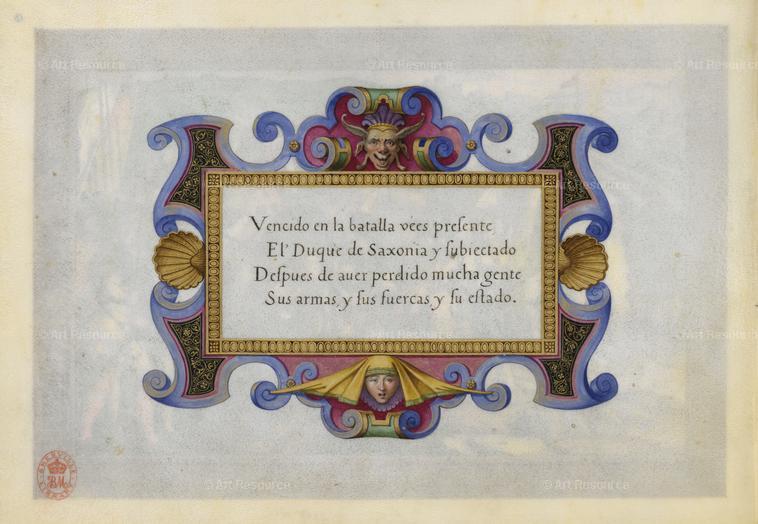 Vencido en la batalla vees presente
El Duque de Saxonia y subiectado
Despues de auer perdido mucha gente
Sus armas, y sus fuercas, y su estado.
© Art Resource
© Art Resource
© Art Resource
© Art Resource
© Art Resource
© Art Resource
© Art Resource
© Art Resource